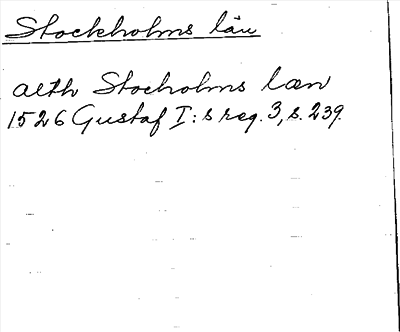 Stockholms län
alth Stocholms læn
1526 Gustaf I:s reg. 3, s. 239.